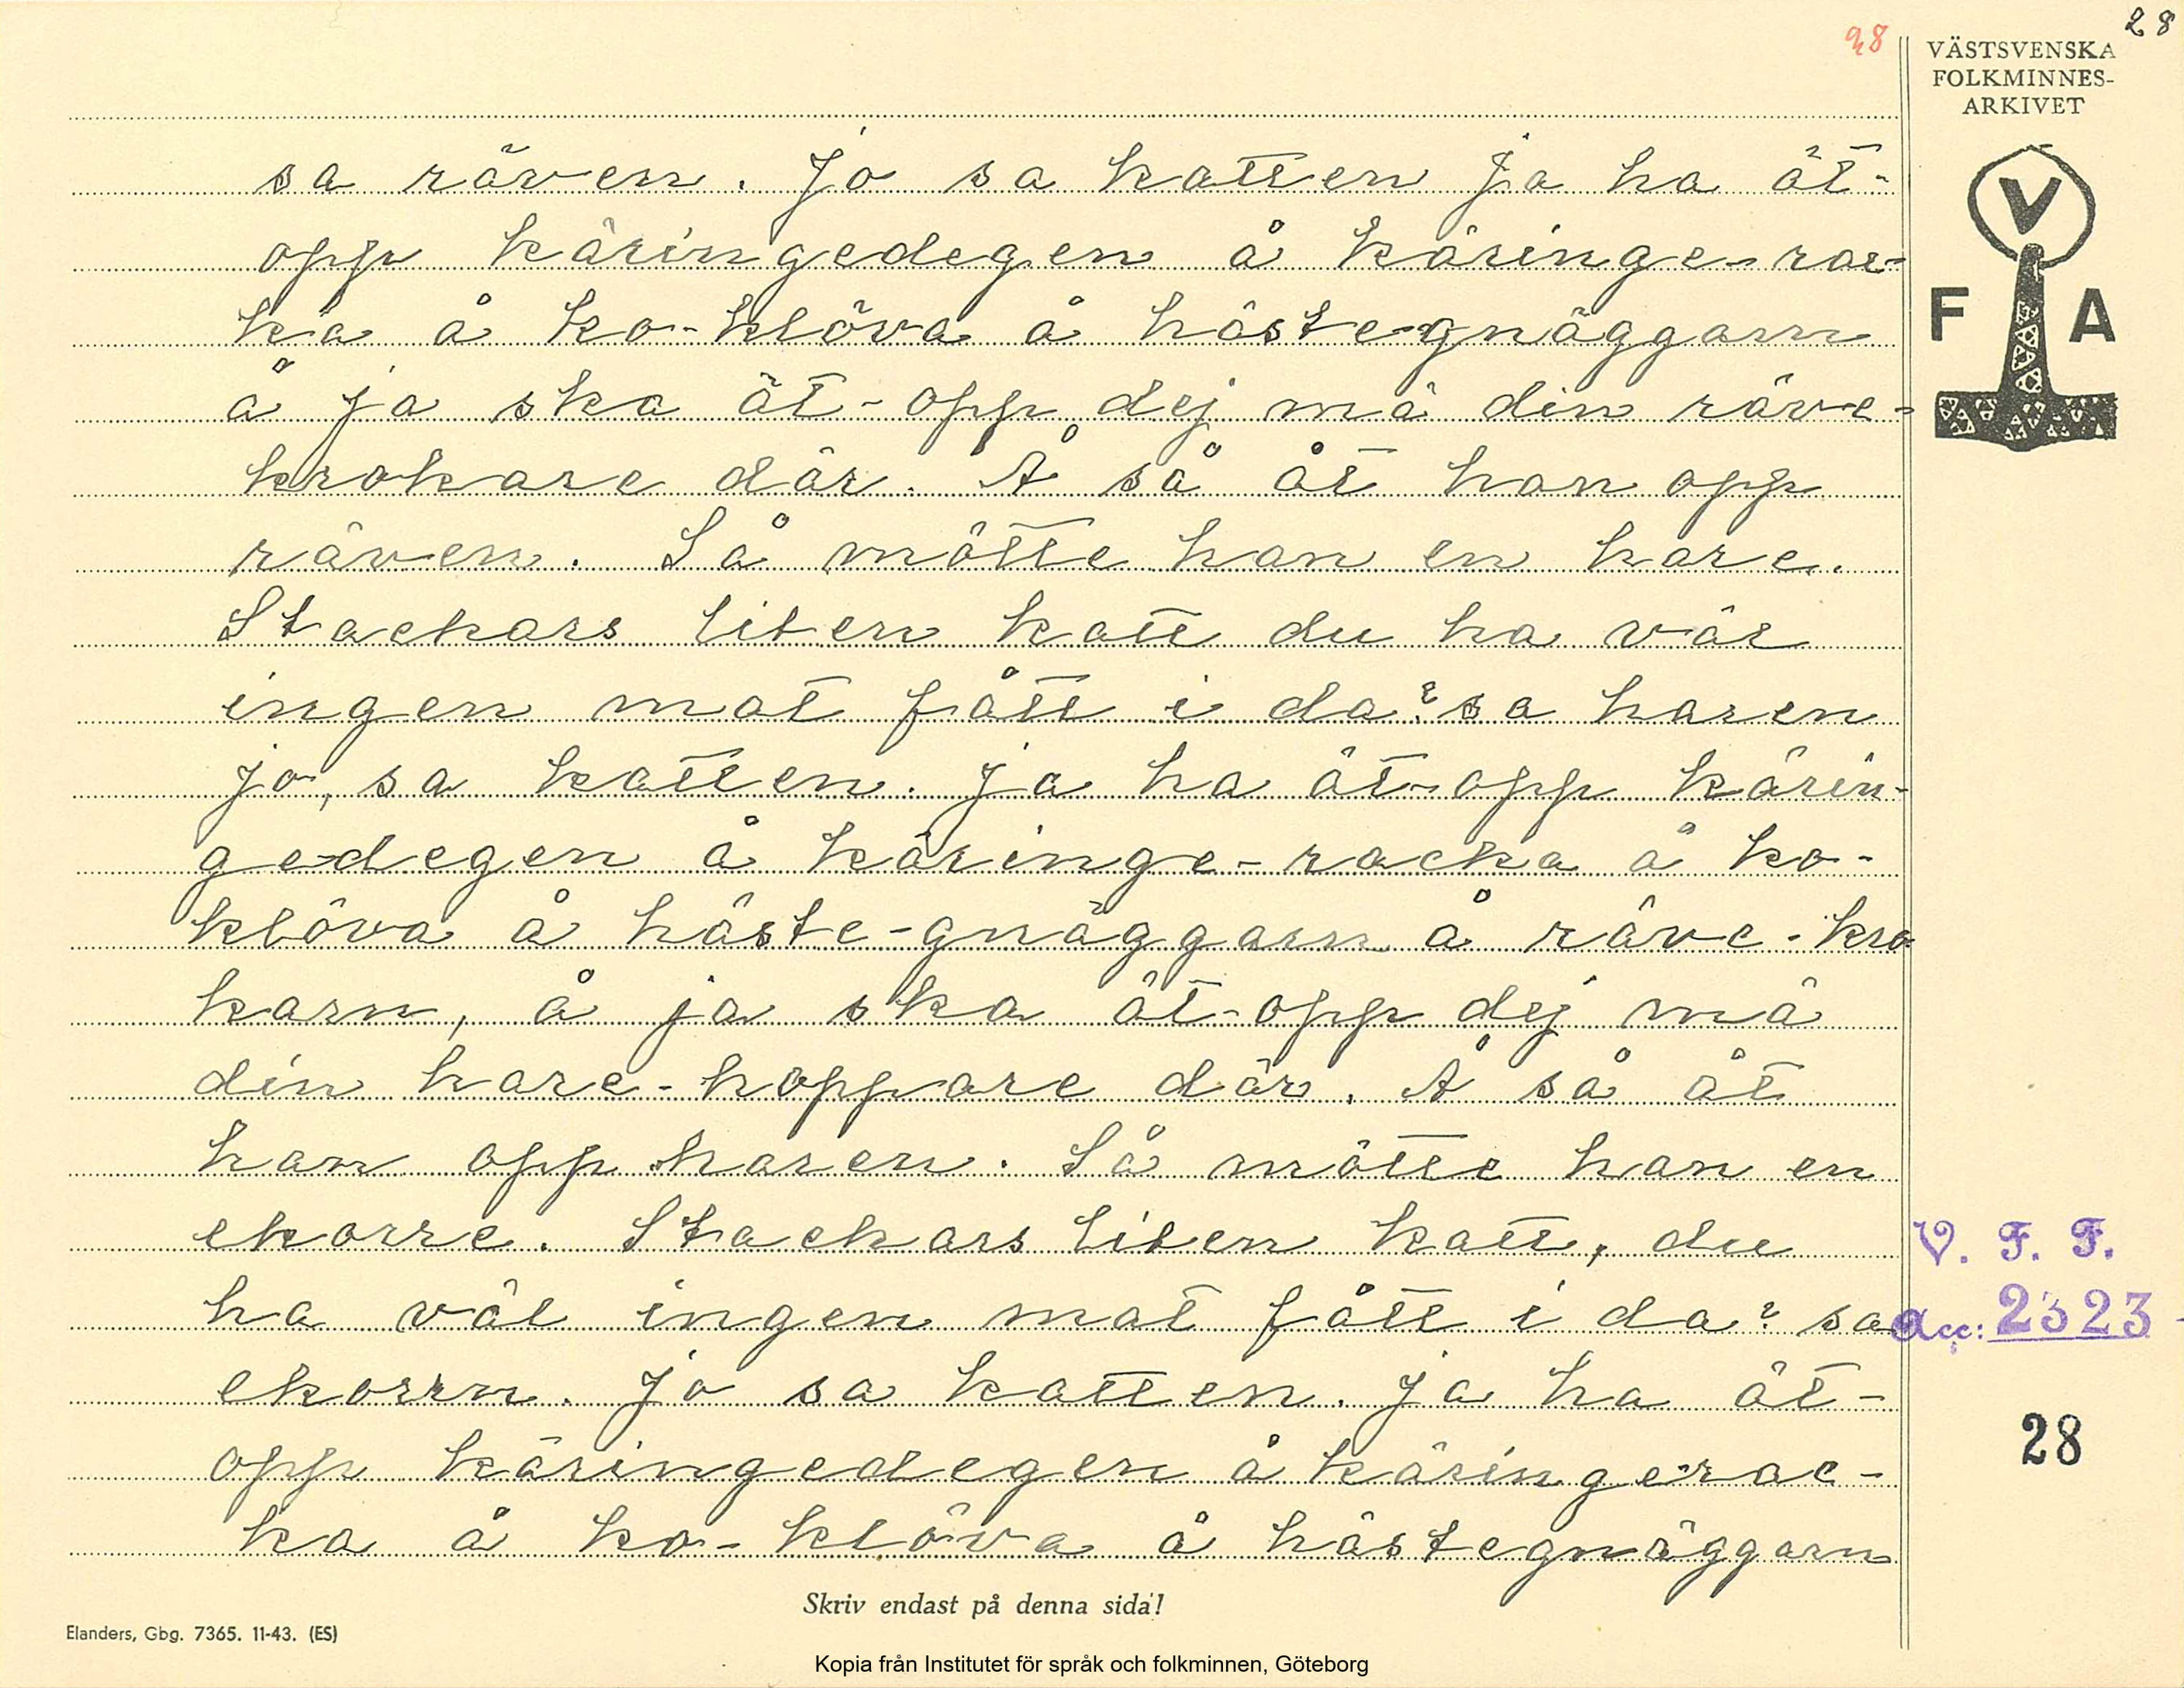 28
28
VÄSTSVENSKA
FOLKMINNES-
ARKIVET
V
F A
sa räven. Jo sa katten ja ha ät-
opp käringedegen å käringe-rac-
ka å ko-klöva å hästegnäggarn
å ja ska ät-opp dej mä din räve-
krokare där. Å så åt han opp
räven. Så mötte han en hare.
Stackars liten katt du ha väl
ingen mat fått i da? sa haren
jo, sa katten. ja ha ät-opp kärin-
gedegen å käringe-racka å ko-
klöva å häste-gnäggarn å räve-kro
karn, å ja ska ät-opp dej mä
din hare-hoppare där. Å så åt
han opp haren. Så mötte han en
ekorre. Stackars liten katt, du
ha väl ingen mat fått i da? sa
ekorrn. Jo sa katten. Ja ha ät-
opp käringedegen å käringerac-
ka å ko-klöva å hästegnäggarn
V. F. F.
acc: 2323
28
Skriv endast på denna sida!
Elanders, Gbg. 7365. 11-43. (ES)
Kopia från Institutet för språk och folkminnen, Göteborg